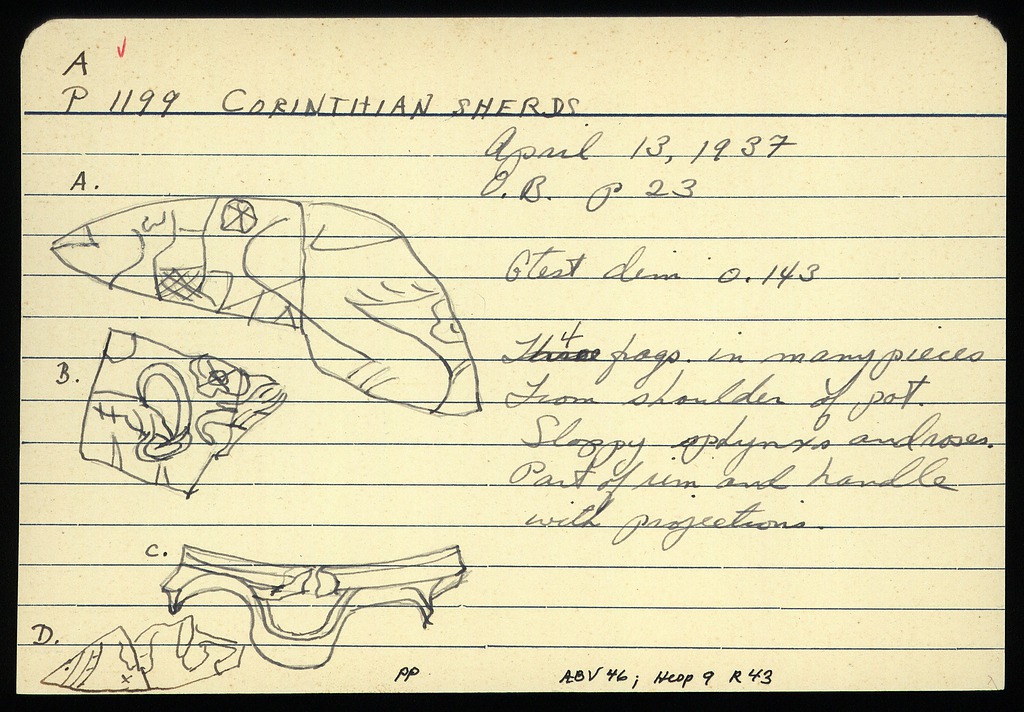 A ✓
P 1199 CORINTHIAN SHERDS
April 13, 1937
O.B. p 23
A.
Gtest dim 0.143
4
Three frags. in many pieces
B.
From shoulder of pot.
Sloppy sphynxs and roses.
Part of rim and handle
with projections.
C.
D.
PP
ABV 46; Hesp 9 R 43